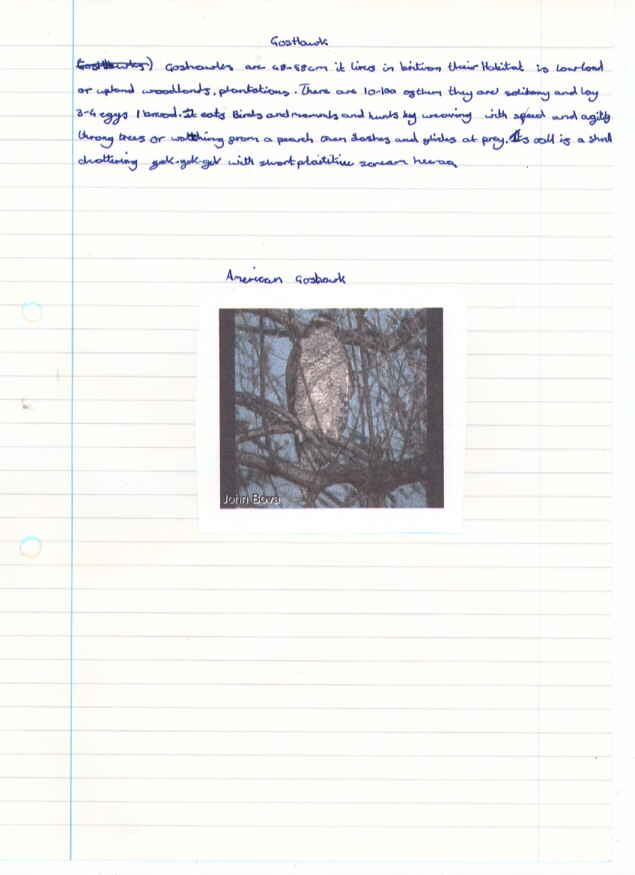 Goshawk
Goshawks) Goshawks are 48-58cm it lives in britian their Habitat is lowland
or upland woodlands, plantations. There are 10-100 of them they are solitary and lay
3-4 eggs 1 brood. It eats Birds and mammals and hunts by weaving with speed and agility
throng trees or watching from a pearch then dashes and glides at prey. It's call is a shrill
chattering gek-gek-gek with short plaintive scream
American Goshawk
John Bova